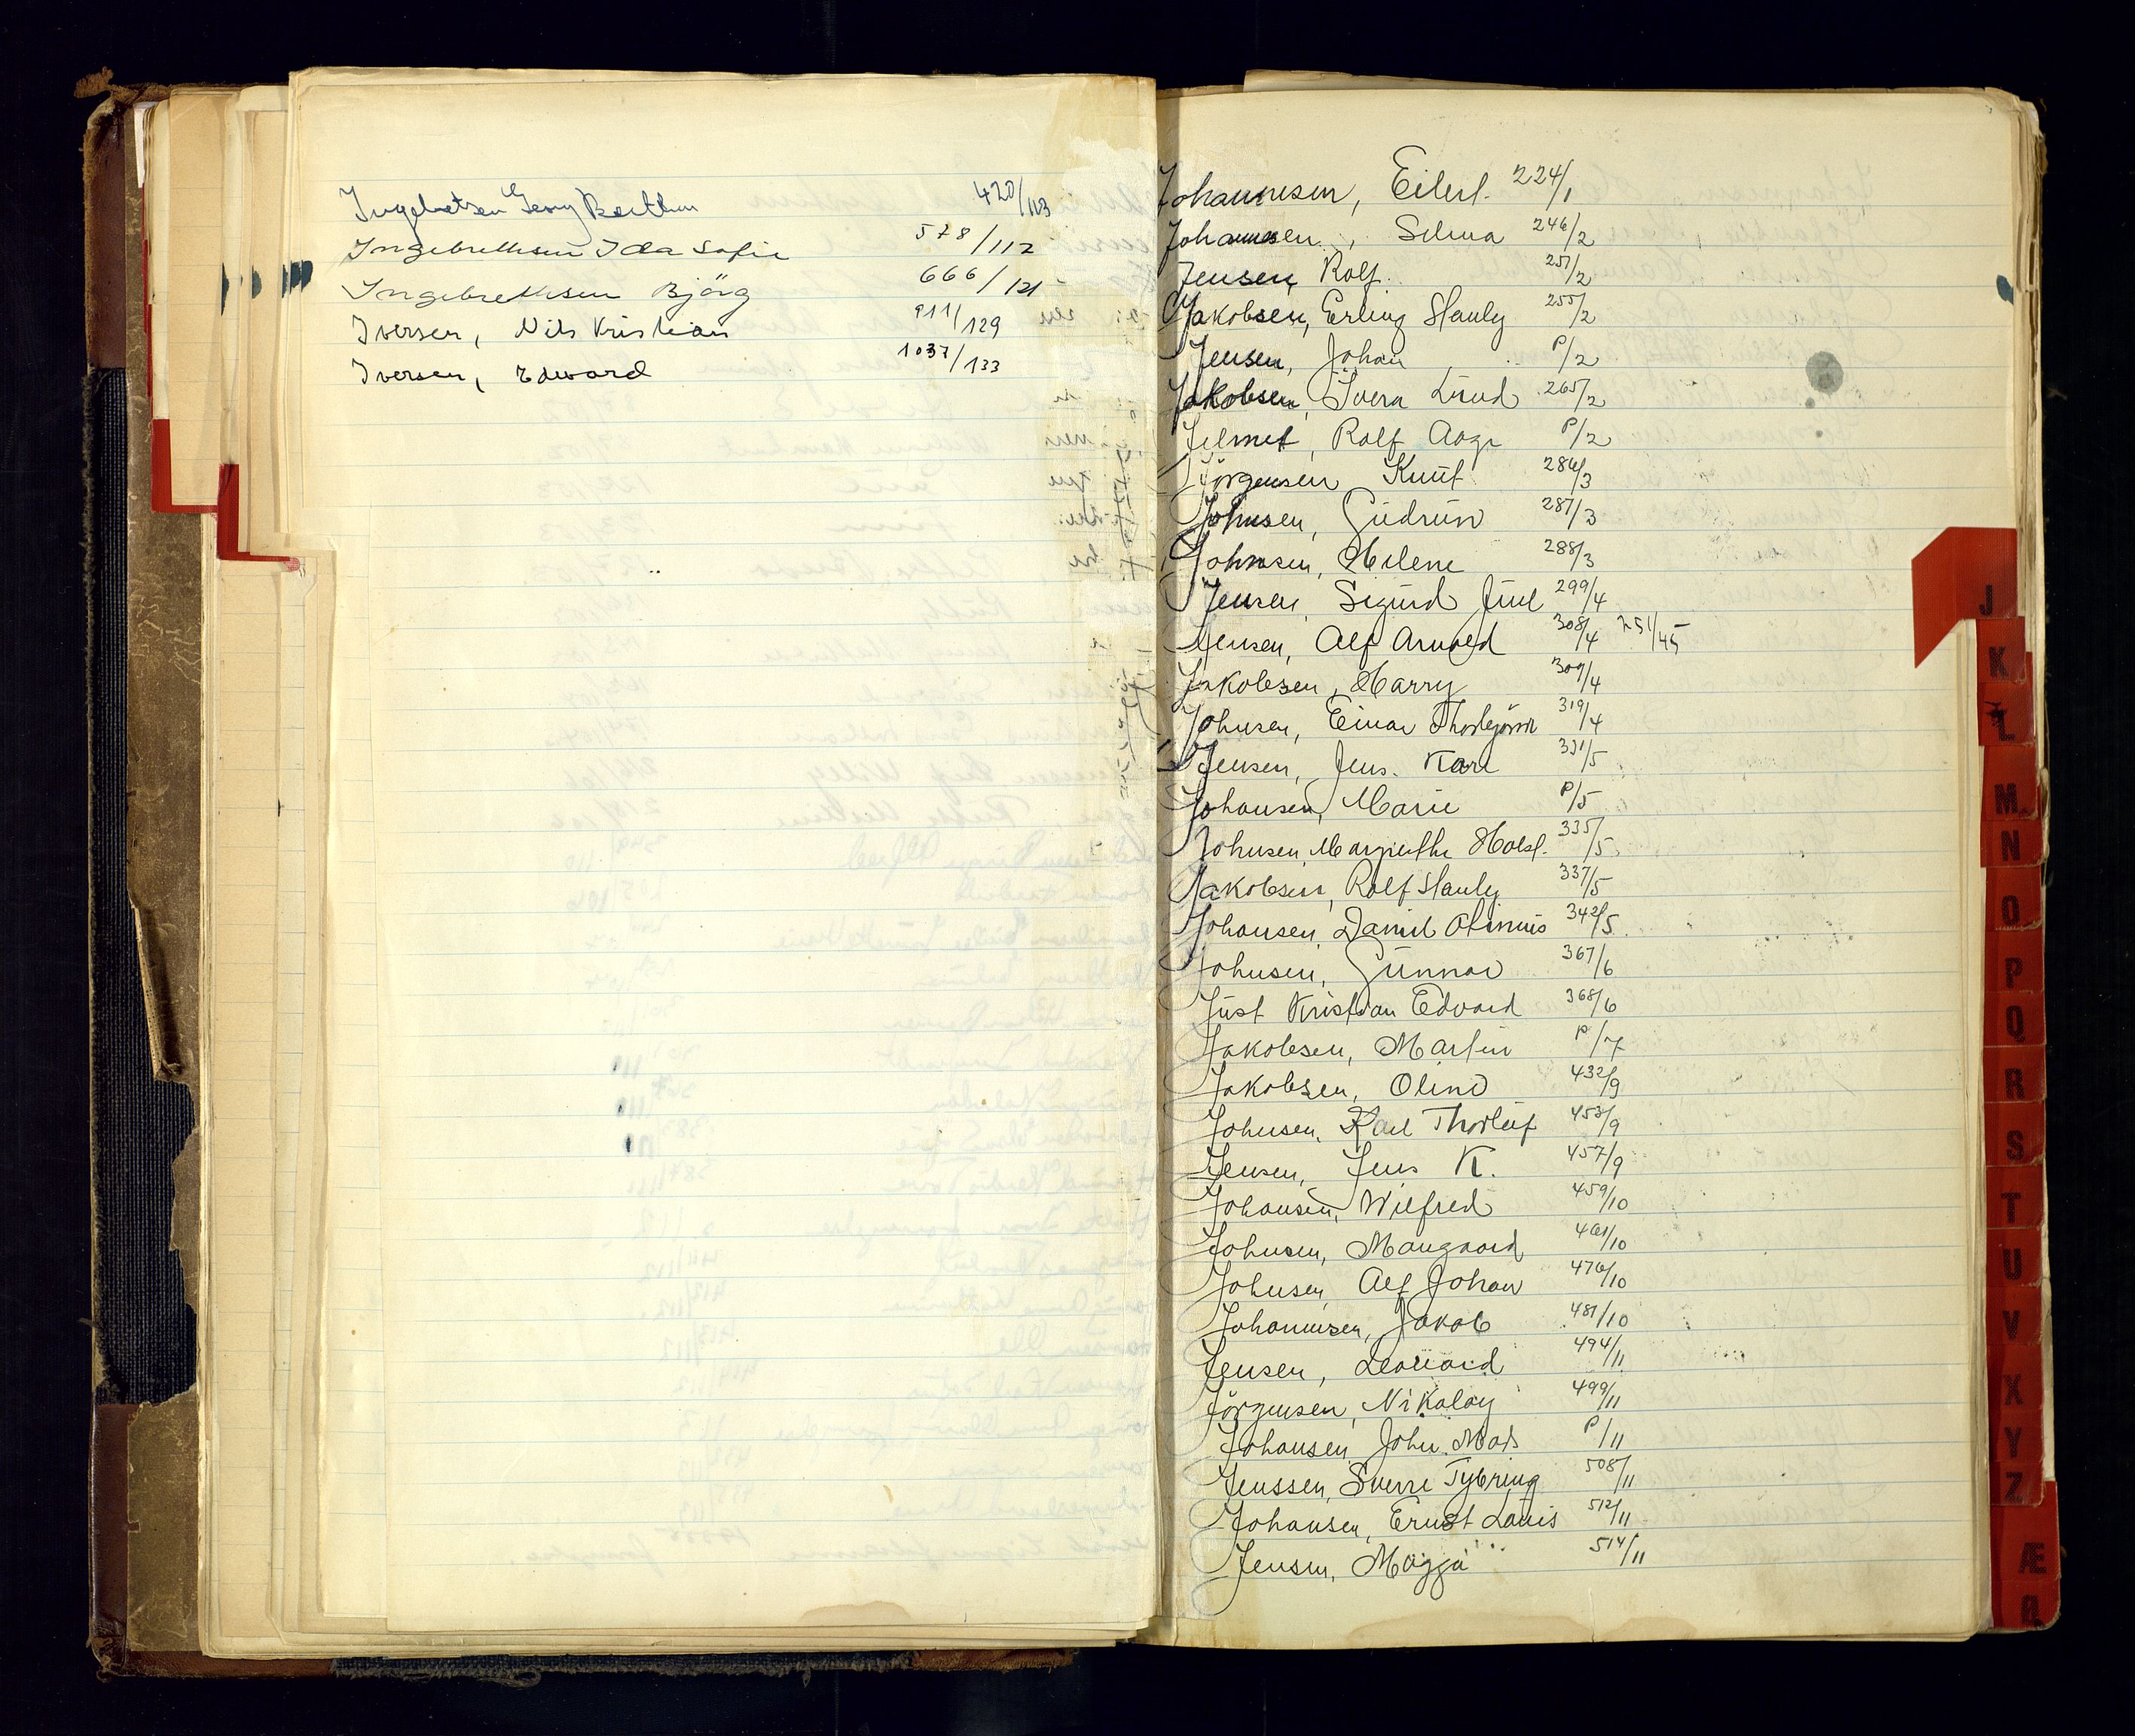 Ingebretsen Georg Berthin 420/113
Ingebrethsen Ida Sofie 578/112
Ingebrethsen Björg 666/121
Iversen, Nils Kristian 911/129
Iversen, Edward 1037/133
Johannesen, Eilert. 224/1
Johannesen, Selma 246/2
Jensen, Rolf. 251/2
Jakobsen, Erling Stanly 255/2
Jensen, Johan P/2
Jakobsen, Svera Lund 265/2
Jelmet, Rolf Aage P/2
Jörgensen Knut 286/3
Johnsen, Gudrun 287/3
Johnsen, Helene 288/3
Jensen, Sigurd Juul 299/4
Jensen, Alf Arnold 308/4 251/45
Jakobsen, Harry 309/4
Johnsen, Einar Thorbjörn 319/4
Jensen, Jens. Karl 331/5
Johansen, Marie P/5
Johnsen, Margrethe Holst. 335/5
Jakobsen, Rolf Stanly 337/5
Johansen, Daniel Olinius 342/5
Johnsen, Gunnar 367/6
Just Kristian Edvard 368/6
Jakobsen, Martin P/7
Jakobsen, Olind 432/9
Johnsen, Karl Thorleif 453/9
Jensen, Jens K. 457/9
Johansen, Wilfred 459/10
Johnsen, Mangaard 461/10
Johnsen, Alf Johan 476/10
Johannesen, Jakob 481/10
Jensen, Leonard 494/11
Jörgensen, Nikolay 499/11
Johansen, John. Mads P/11
Jenssen, Sverre Tybring 508/11
Johansen, Ernst Louis 512/11
Jensen, Magga 514/11
J
K
L
M
N
O
P
Q
R
S
T
U
V
X
Y
Z
Æ
Ø